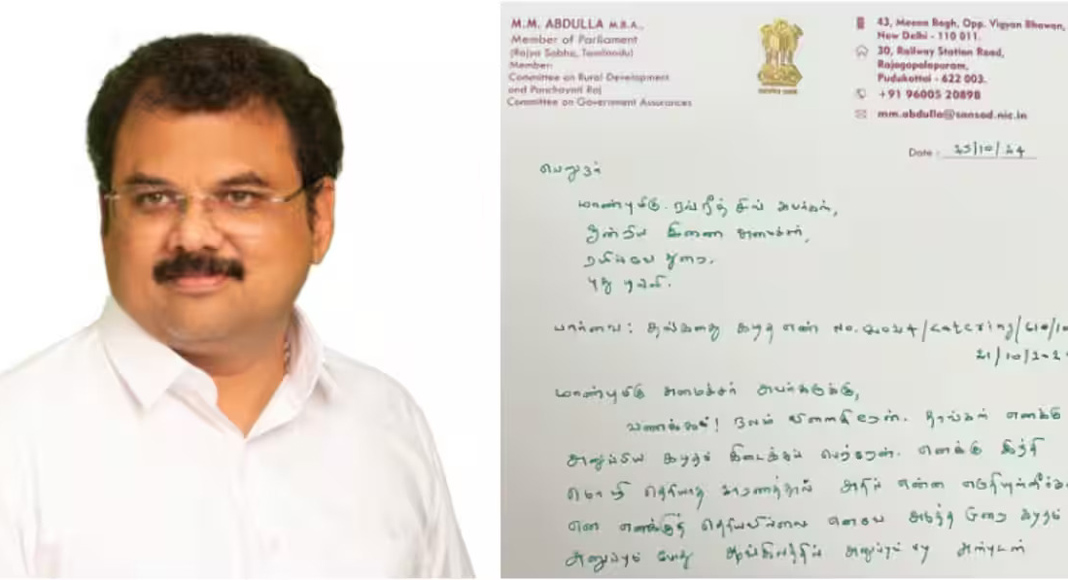 M.M. ABDULLA M.B.A.,
Member of Parliament
(Rajya Sabha, Tamilnadu)
Member:
Committee on Rural Development
and Panchayati Raj
Committee on Government Assurances
43, Meena Bagh, Opp. Vigyan Bhawan,
New Delhi - 110 011.
30, Railway Station Road,
Rajagopalapuram,
Pudukottai - 622 003.
+91 96005 20898
mm.abdulla@sansad.nic.in
Date : 25/10/24
பெறுநர்
மாண்புமிகு. ரவ்நீத் சிங் அவர்கள்,
ஒன்றிய இணை அமைச்சர்,
ரயில்வே துறை,
புது டில்லி.
பார்வை : தங்களது கடித எண் No. 2024/Catering/
21/10/
மாண்புமிகு அமைச்சர் அவர்களுக்கு,
வணக்கம்! நலம் விளைகிறேன். தாங்கள் எனக்கு
அனுப்பிய கடிதம் கிடைக்கப் பெற்றேன். எனக்கு இந்தி
மொழி தெரியாத காரணத்தால் அதில் என்ன
என எனக்குத் தெரியவில்லை எனவே அடுத்த முறை கடிதம்
அனுப்பும் போது ஆங்கிலத்தில் அனுப்பும் படி அன்புடன்